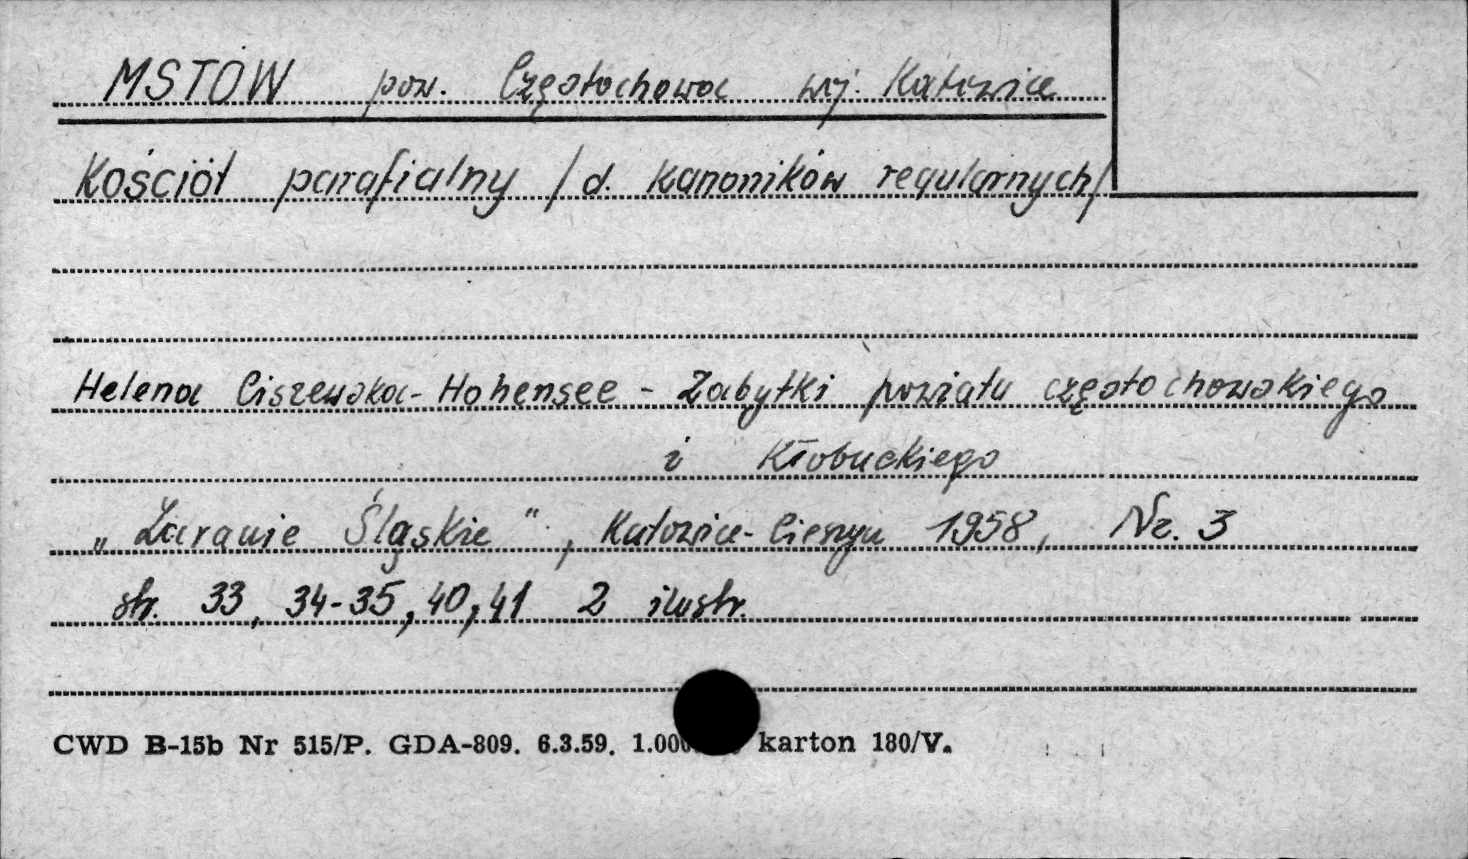 MSTÓW pow. Częstochowa wj. Katowice
Kościół parafialny /d. kanoników regularnych/
Helena Ciszewska-Hohensee - Zabytki powiatu częstochowskiego
i Kłobuckiego
„Zaranie Śląskie", Katowice-Cieszyn 1958, Nr. 3
str. 33, 34-35, 40, 41 2 ilustr.
CWD B-15b Nr 515/P. GDA-809. 6.3.59. 1.000 karton 180/V.